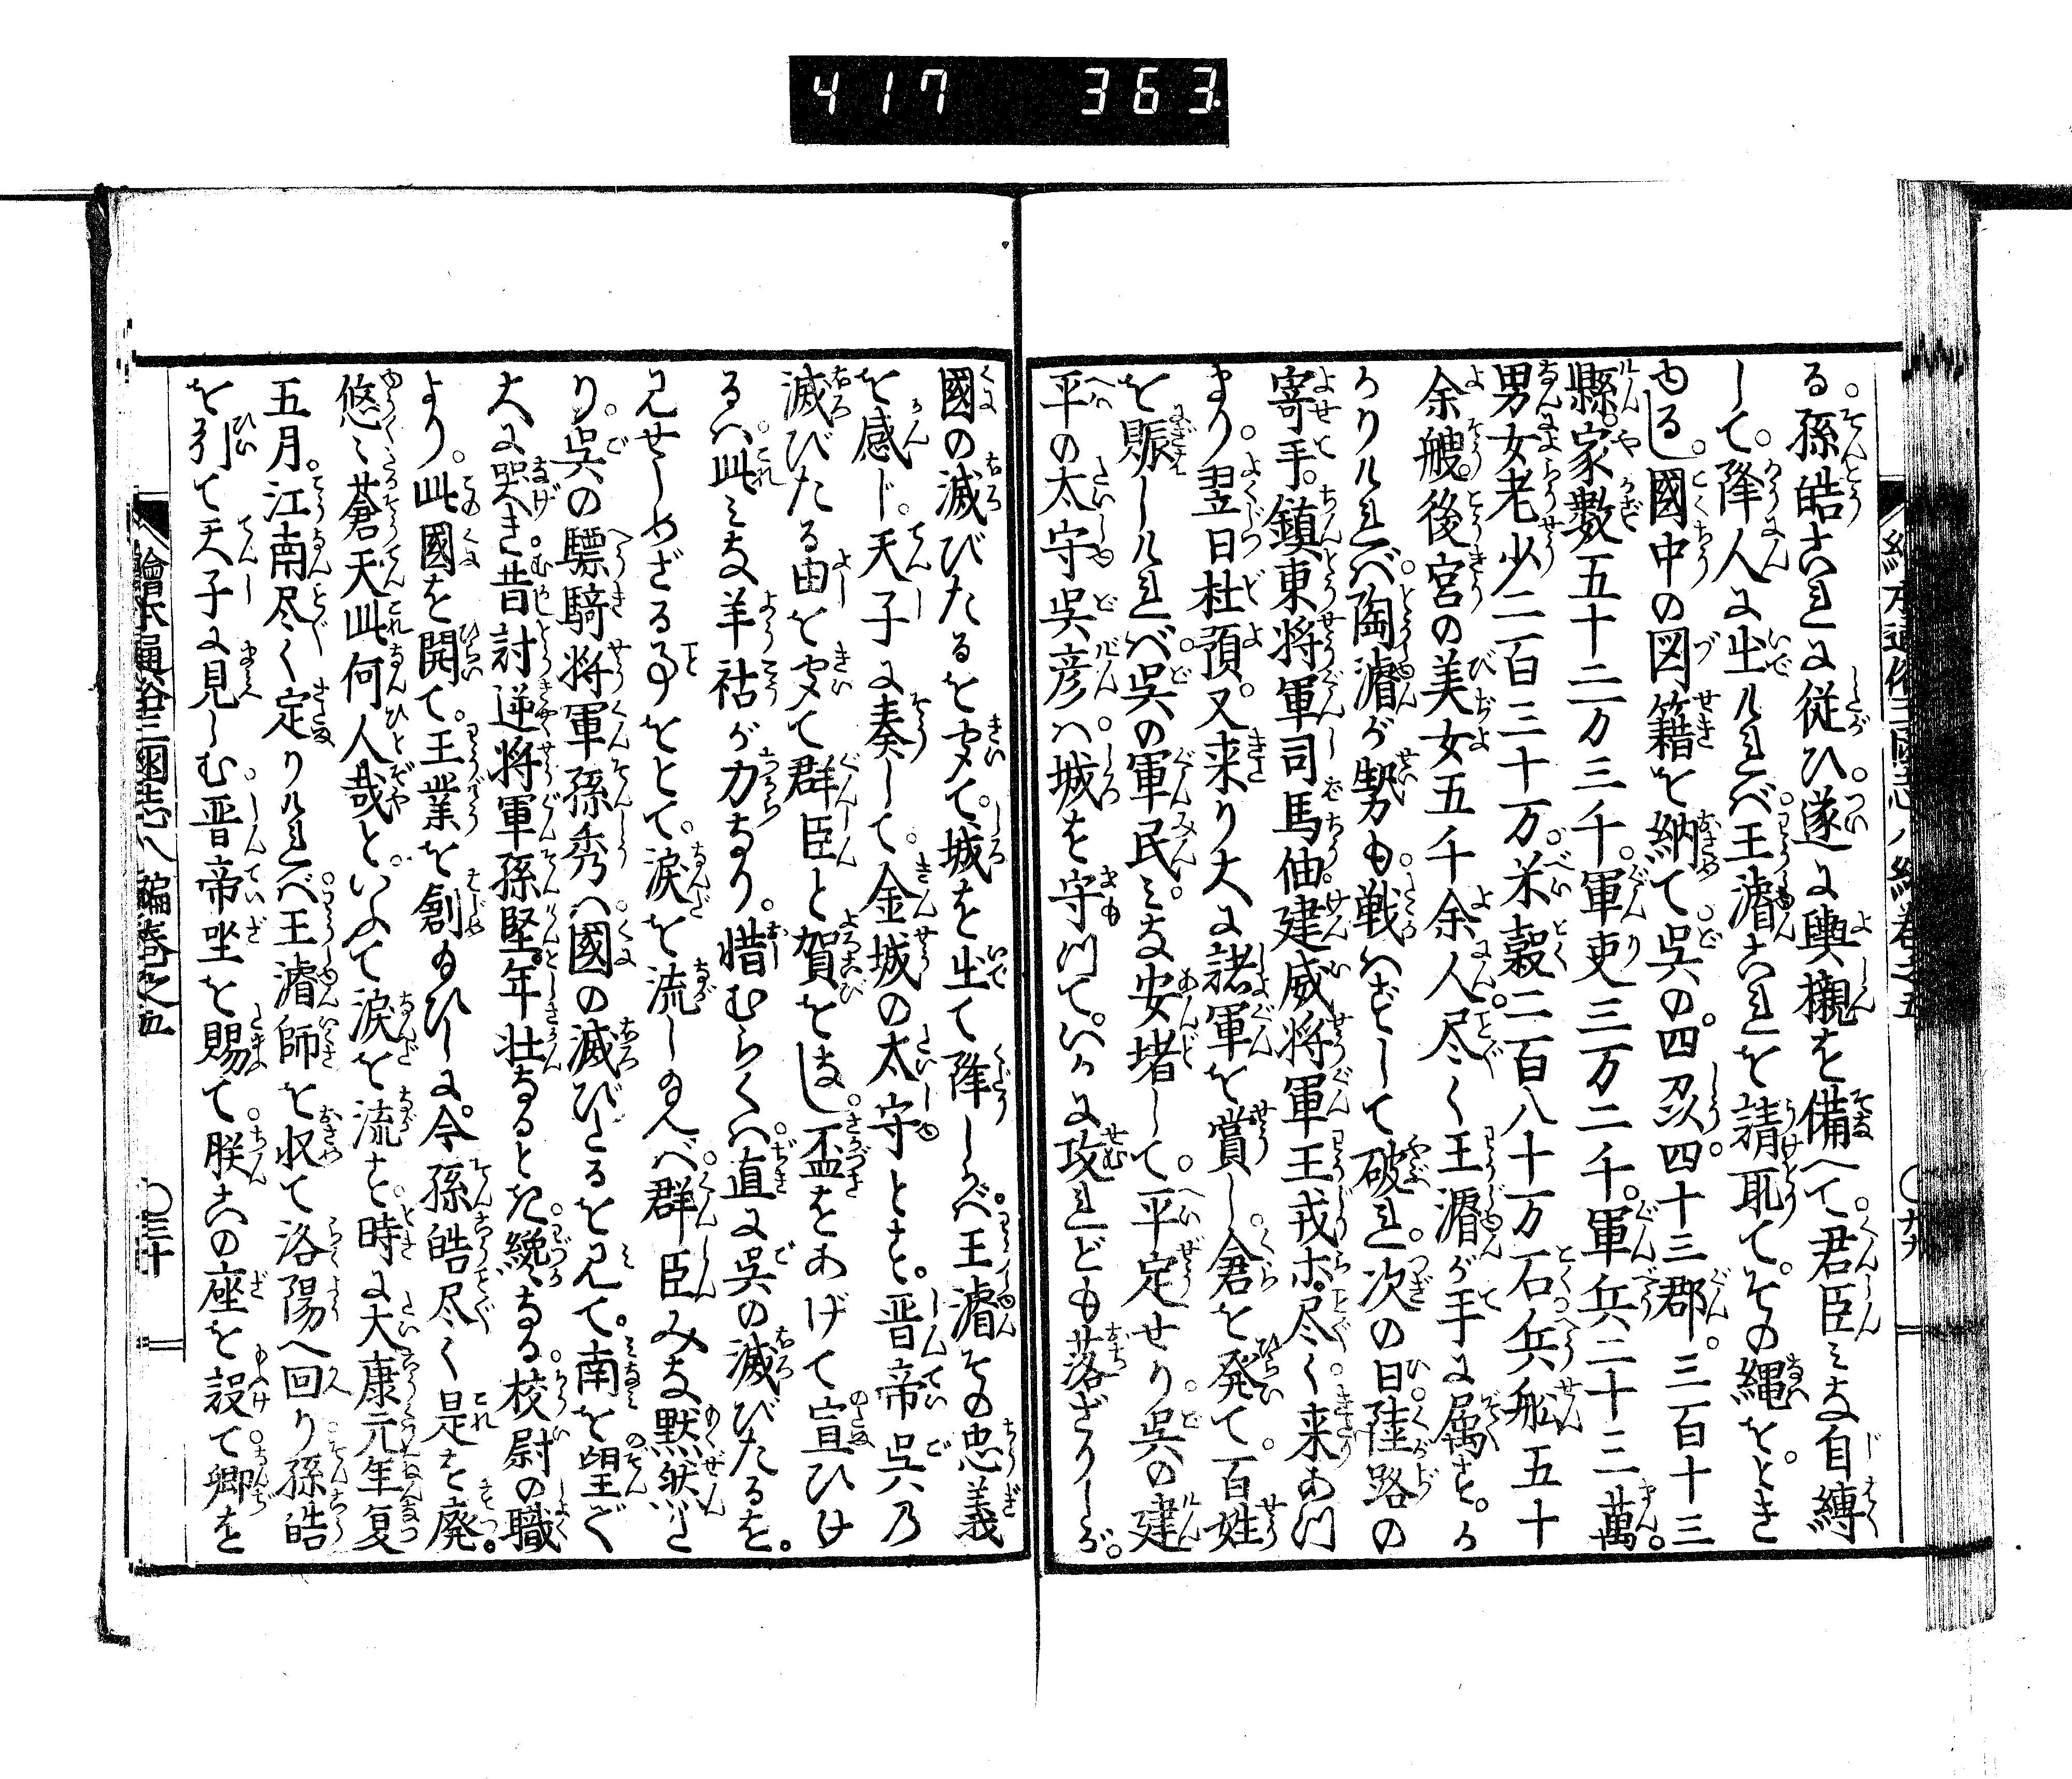 417 363
る。孫皓これに従ひ。遂に輿櫬を備へて。君臣みな自縛
して。降人に出ければ。王濬これを請取て。その縄を。とき
ゆるし。國中の図籍を納て呉の。四夘。四十三郡。三百十三
縣。家數五十二万三千。軍吏三万二千。軍兵二十三萬。
男女老少二百三十万。米穀二百八十万石兵舩五十
余艘。後宮の美女五千余人。尽く王濬が手に属す。か
かりければ。陶濬が勢も。戦はずして破れ。次の日。陸路の
寄手。鎮東将軍司馬伷。建威将軍王戎ホ。尽く来あつ
まり。翌日杜預。又来り大に諸軍を賞し倉を発て。百姓
を賑しければ。呉の軍民。みな安堵して。平定せり。呉の建
平の太守呉彦は。城を守つて。いかに攻れども落ざりしが。
國の滅びたるを聞て。城を出て降しかば。王濬その忠義
を感じ。天子に奏して。金城の太守とす。晋帝呉乃
滅びたる由を聞て群臣と賀をなし。盃をあげて宣ひけ
るは。此みな羊祜が力なり。惜むらくは。直に呉の滅びたるを。
見せしめざる事をとて。涙を流し給へば。群臣みな黙然た
り。呉の驃騎将軍孫秀は。國の滅びたるを見て。南を望で
大に哭き。昔討逆将軍孫堅。年壮なるとき。纔なる校尉の職
より。此國を開て。王業を創め給ひしに。今。孫皓尽く是を廃。
悠〻蒼天此何人哉と。いふて涙を流す。時に大康元年夏
五月。江南尽く定りければ。王濬師を収て洛陽へ回り。孫皓
を引て天子に見しむ。晋帝坐を賜て。朕この座を設て。卿を
繪本通俗三國志八編巻之五
〇三十